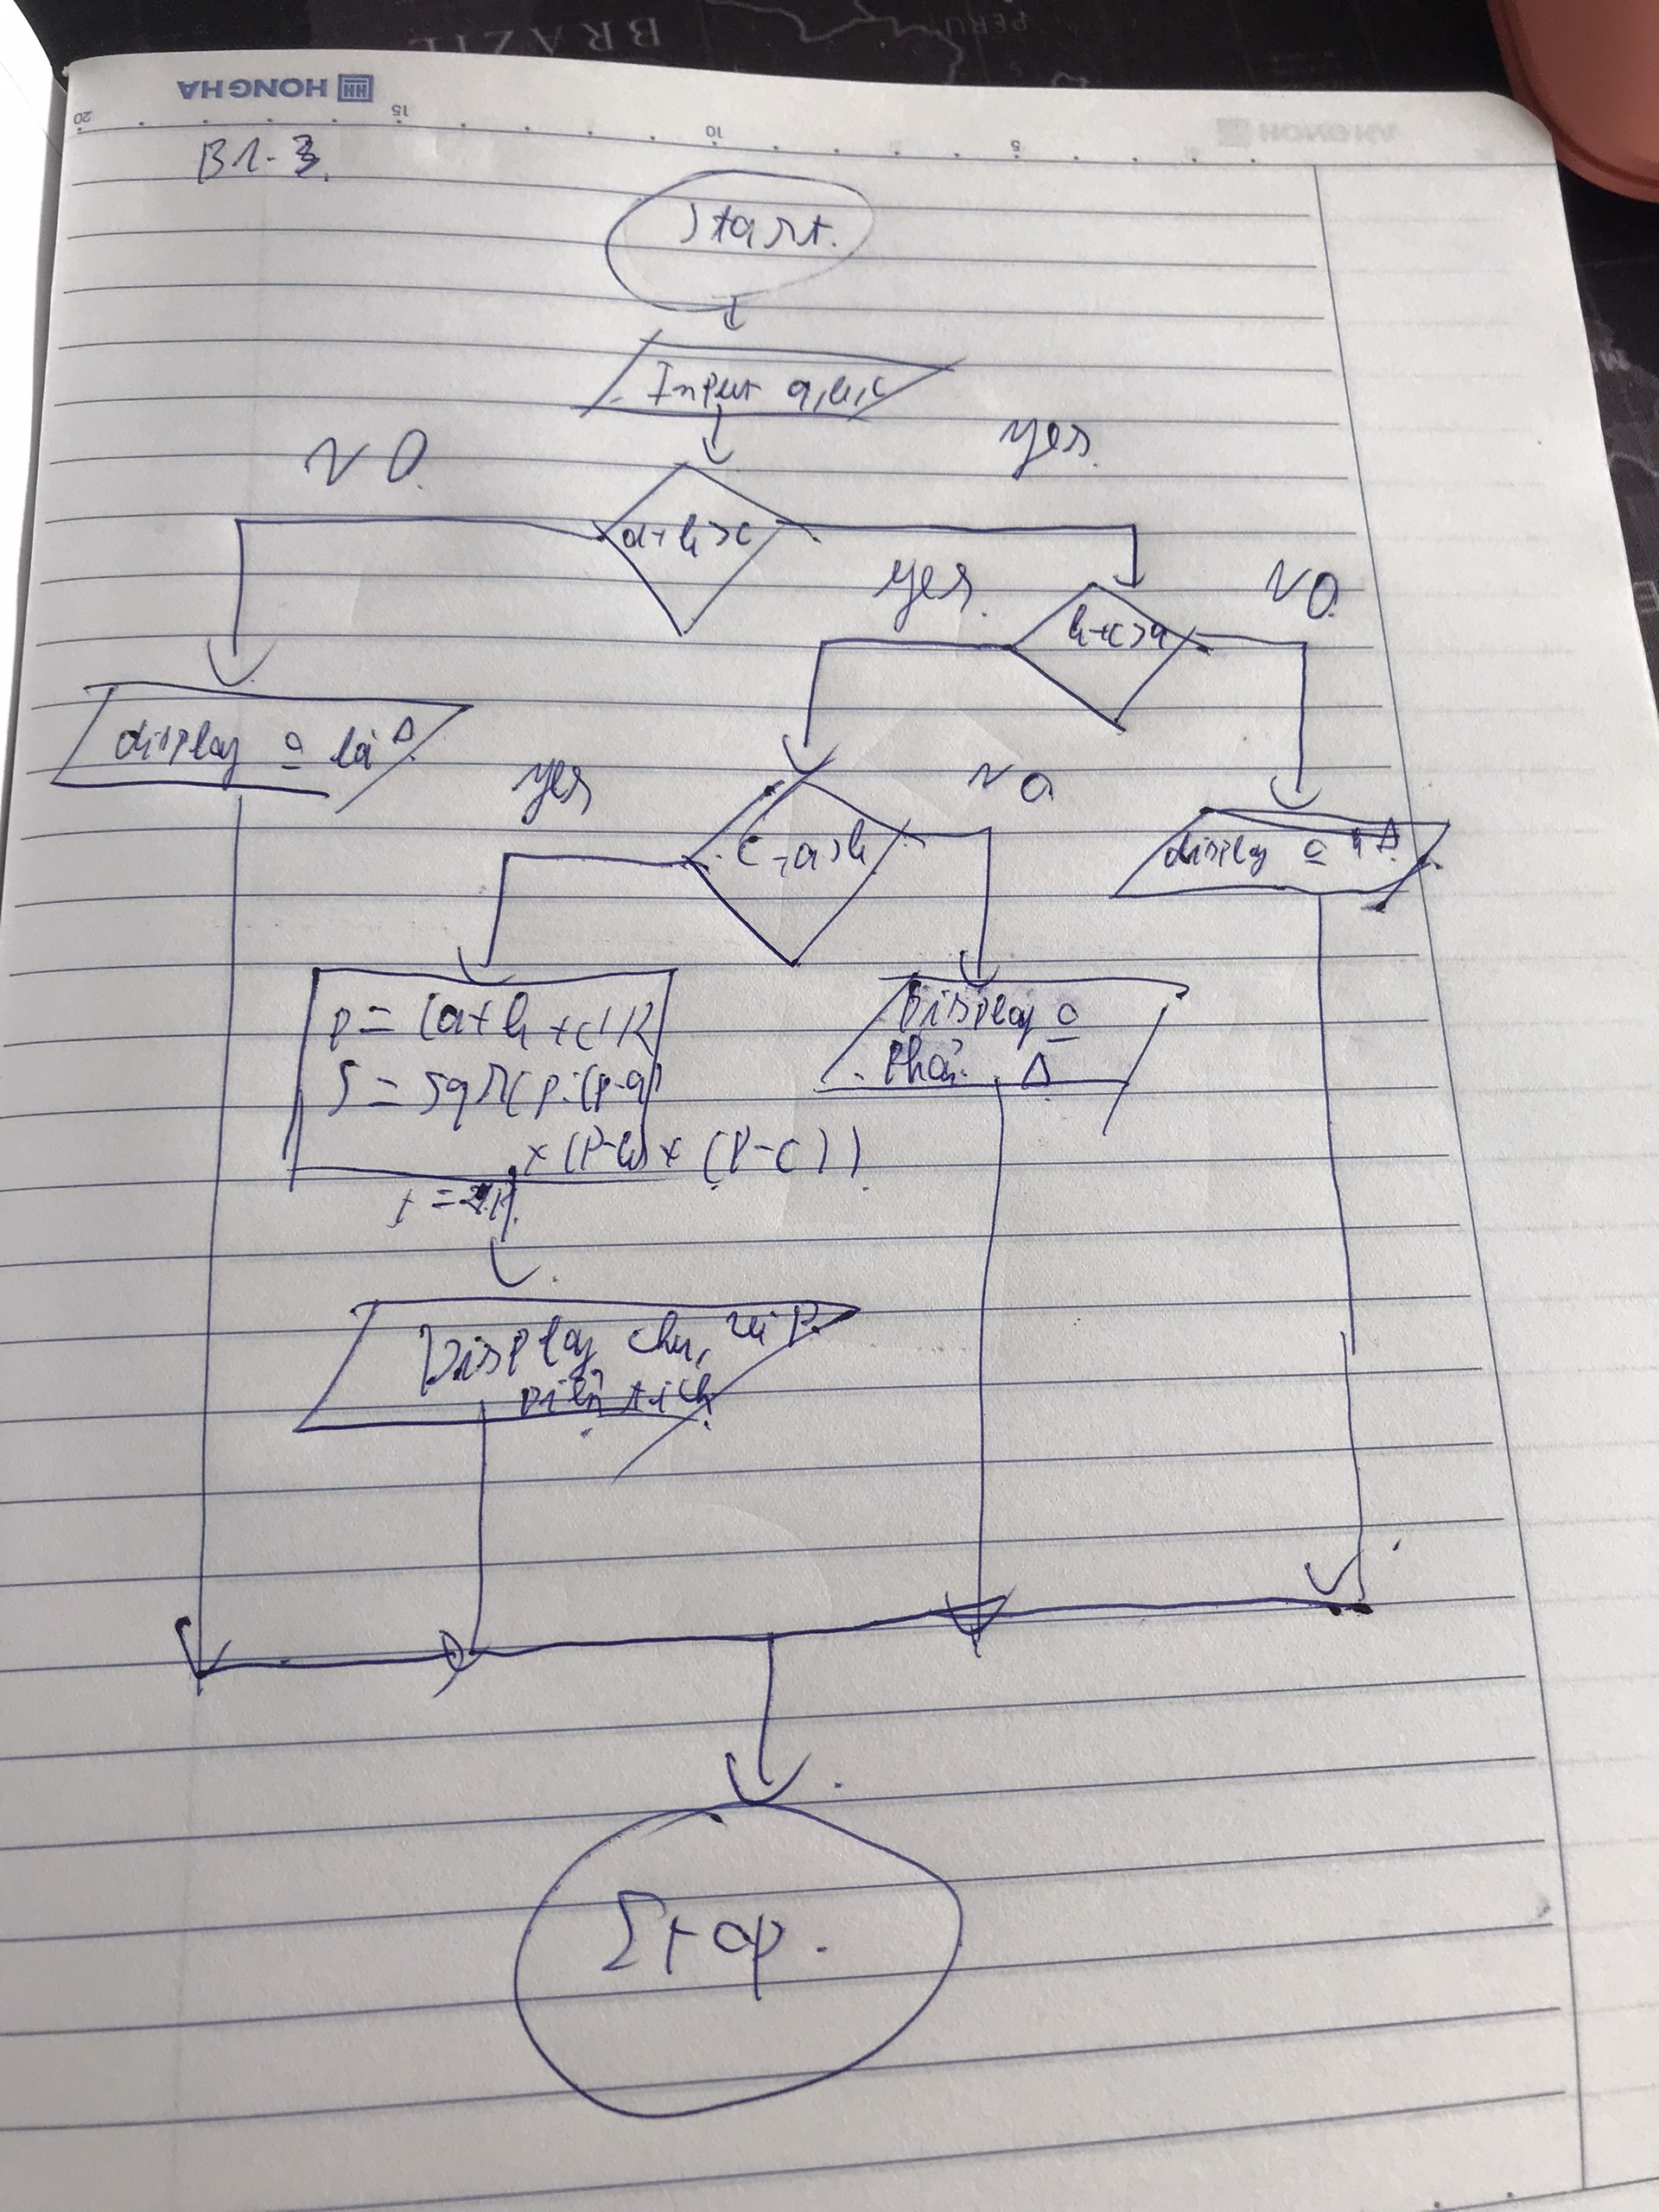 BRAZIL
PERU
HONG HA
20 15 10 5
B1-3.
Start.
Input a,b,c
NO.
yes.
a+b>c
yes.
NO.
b+c>a
display o là Δ
yes
NO
c+a>b
display o Δ.
p = (a+b+c)/2
S = sqr(p.(p-a)
x (p-b) x (p-c))
Display o
phải Δ
Display chu, vi P.
Diện tích
Stop.